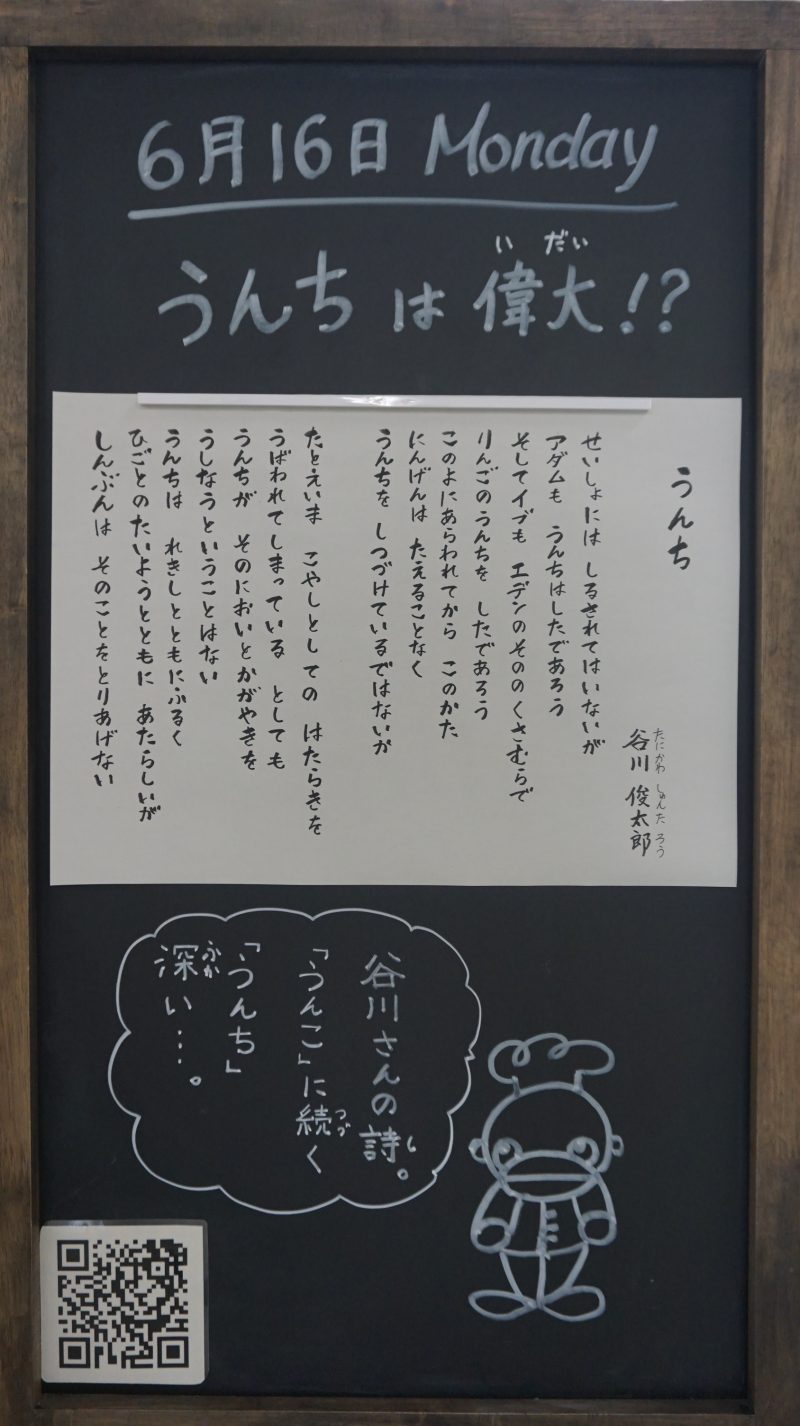 6月16日 Monday
いだい
うんちは偉大!?
うんち
たにかわ しゅんたろう
谷川 俊太郎
せいしょには しるされてはいないが
アダムも うんちはしたであろう
そしてイブも エデンのそののくさむらで
りんごのうんちを したであろう
このよにあらわれてから このかた
にんげんは たえることなく
うんちを しつづけているではないか
たとえいま こやしとしての はたらきを
うばわれてしまっている としても
うんちが そのにおいとかがやきを
うしなうということはない
うんちは れきしとともにふるく
ひごとのたいようとともに あたらしいが
しんぶんは そのことをとりあげない
谷川さんの詩。
し
「うんこ」に続く
つづ
「うんち」
ふか
深い…。